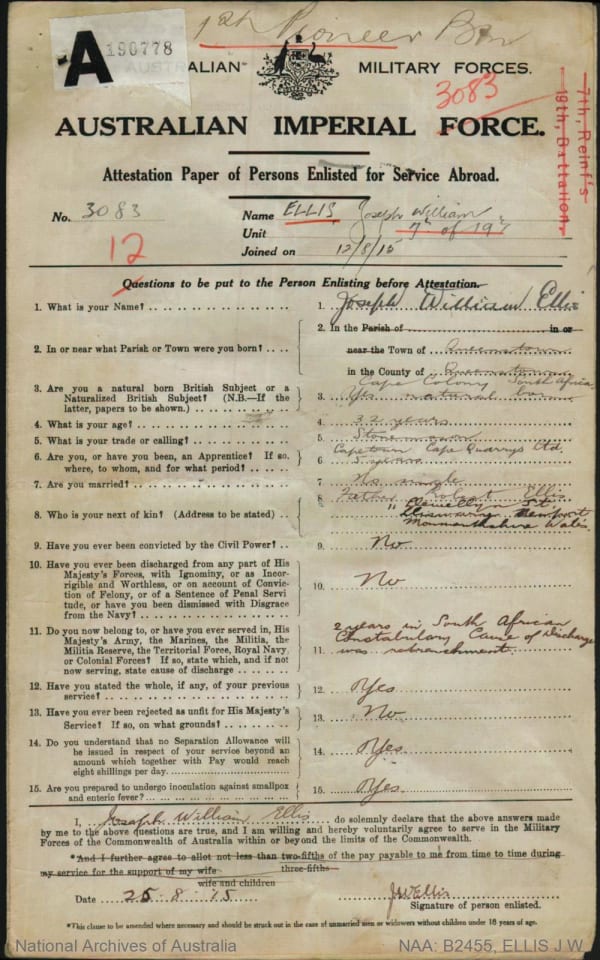 1st Pioneer Bn
A
190778
AUSTRALIAN MILITARY FORCES.
3083
7th. Reinf's
19th. Battalion.
AUSTRALIAN IMPERIAL FORCE.
Attestation Paper of Persons Enlisted for Service Abroad.
No. 3083
Name ELLIS, Joseph William
Unit 7th of 19th
12
Joined on 12/8/15
Questions to be put to the Person Enlisting before Attestation.
1. What is your Name? 1. Joseph William Ellis
2. In or near what Parish or Town were you born? 2. In the Parish of in or
near the Town of Queenstown
in the County of Queenstown
Cape Colony South Africa
3. Are you a natural born British Subject or a
Naturalized British Subject? (N.B.—If the
latter, papers to be shown.) 3. Yes natural born
4. What is your age? 4. 32 years
5. What is your trade or calling? 5. Stone mason
6. Are you, or have you been, an Apprentice? If so,
where, to whom, and for what period? 6. Capetown Cape Quarrys Ltd.
5 years
7. Are you married? 7. No single
8. Who is your next of kin? (Address to be stated) 8. Father Robert Ellis
" Llewellyn St.
Newport
Monmouthshire Wales
9. Have you ever been convicted by the Civil Power? 9. No
10. Have you ever been discharged from any part of His
Majesty's Forces, with Ignominy, or as Incor-
rigible and Worthless, or on account of Convic-
tion of Felony, or of a Sentence of Penal Servi
tude, or have you been Dismissed with Disgrace
from the Navy? 10. No
11. Do you now belong to, or have you ever served in, His
Majesty's Army, the Marines, the Militia, the
Militia Reserve, the Territorial Force, Royal Navy
or Colonial Forces? If so, state which, and if not
now serving, state cause of discharge 11. 2 years in South African
Constabulary Cause of Discharge
was retrenchment.
12. Have you stated the whole, if any, of your previous
service? 12. Yes
13. Have you ever been rejected as unfit for His Majesty's
Service? If so, on what grounds? 13. No
14. Do you understand that no Separation Allowance will
be issued in respect of your service beyond an
amount which together with Pay would reach
eight shillings per day. 14. Yes
15. Are you prepared to undergo inoculation against smallpox
and enteric fever? 15. Yes.
I, Joseph William Ellis do solemnly declare that the above answers made
by me to the above questions are true, and I am willing and hereby voluntarily agree to serve in the Military
Forces of the Commonwealth of Australia within or beyond the limits of the Commonwealth.
*And I further agree to allot not less than two-fifths of the pay payable to me from time to time during
three-fifths
my service for the support of my wife
wife and children
Date 25-8-15 JWEllis
Signature of person enlisted.
*This clause to be amended where necessary and should be struck out in the case of unmarried men or widowers without children under 18 years of age.
National Archives of Australia
NAA: B2455, ELLIS J W